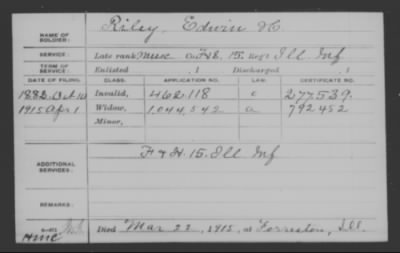 NAME OF SOLDIER: Riley, Edwin H.
SERVICE: Late rank Music Co. F & H, 15 Reg't Ill. Inf.
TERM OF SERVICE: Enlisted , 1 Discharged , 1
DATE OF FILING. CLASS. APPLICATION NO. LAW. CERTIFICATE NO.
1882 Oct 10 Invalid, 462.118 277539.
1915 Apr 1 Widow, 1,044,542 a 792452
Minor,
ADDITIONAL SERVICES: F & H. 15. Ill Inf
REMARKS:
Died Mar 22, 1915, at Forreston, Ill.